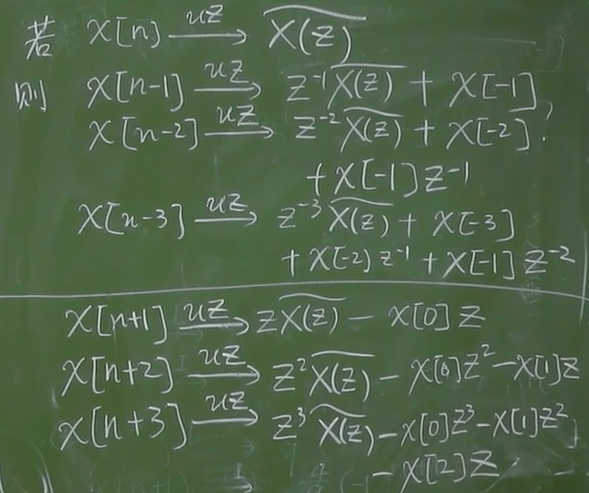 若 X[n] —uZ→ \widetilde{X(z)}
则 X[n-1] —uZ→ z⁻¹\widetilde{X(z)} + X[-1]
X[n-2] —uZ→ z⁻²\widetilde{X(z)} + X[-2]
+X[-1]z⁻¹
X[n-3] —uZ→ z⁻³\widetilde{X(z)} + X[-3]
+X[-2]z⁻¹ + X[-1]z⁻²
X[n+1] —uZ→ z\widetilde{X(z)} - X[0]z
X[n+2] —uZ→ z²\widetilde{X(z)} - X[0]z² - X[1]z
X[n+3] —uZ→ z³\widetilde{X(z)} - X[0]z³ - X[1]z²
-X[2]z